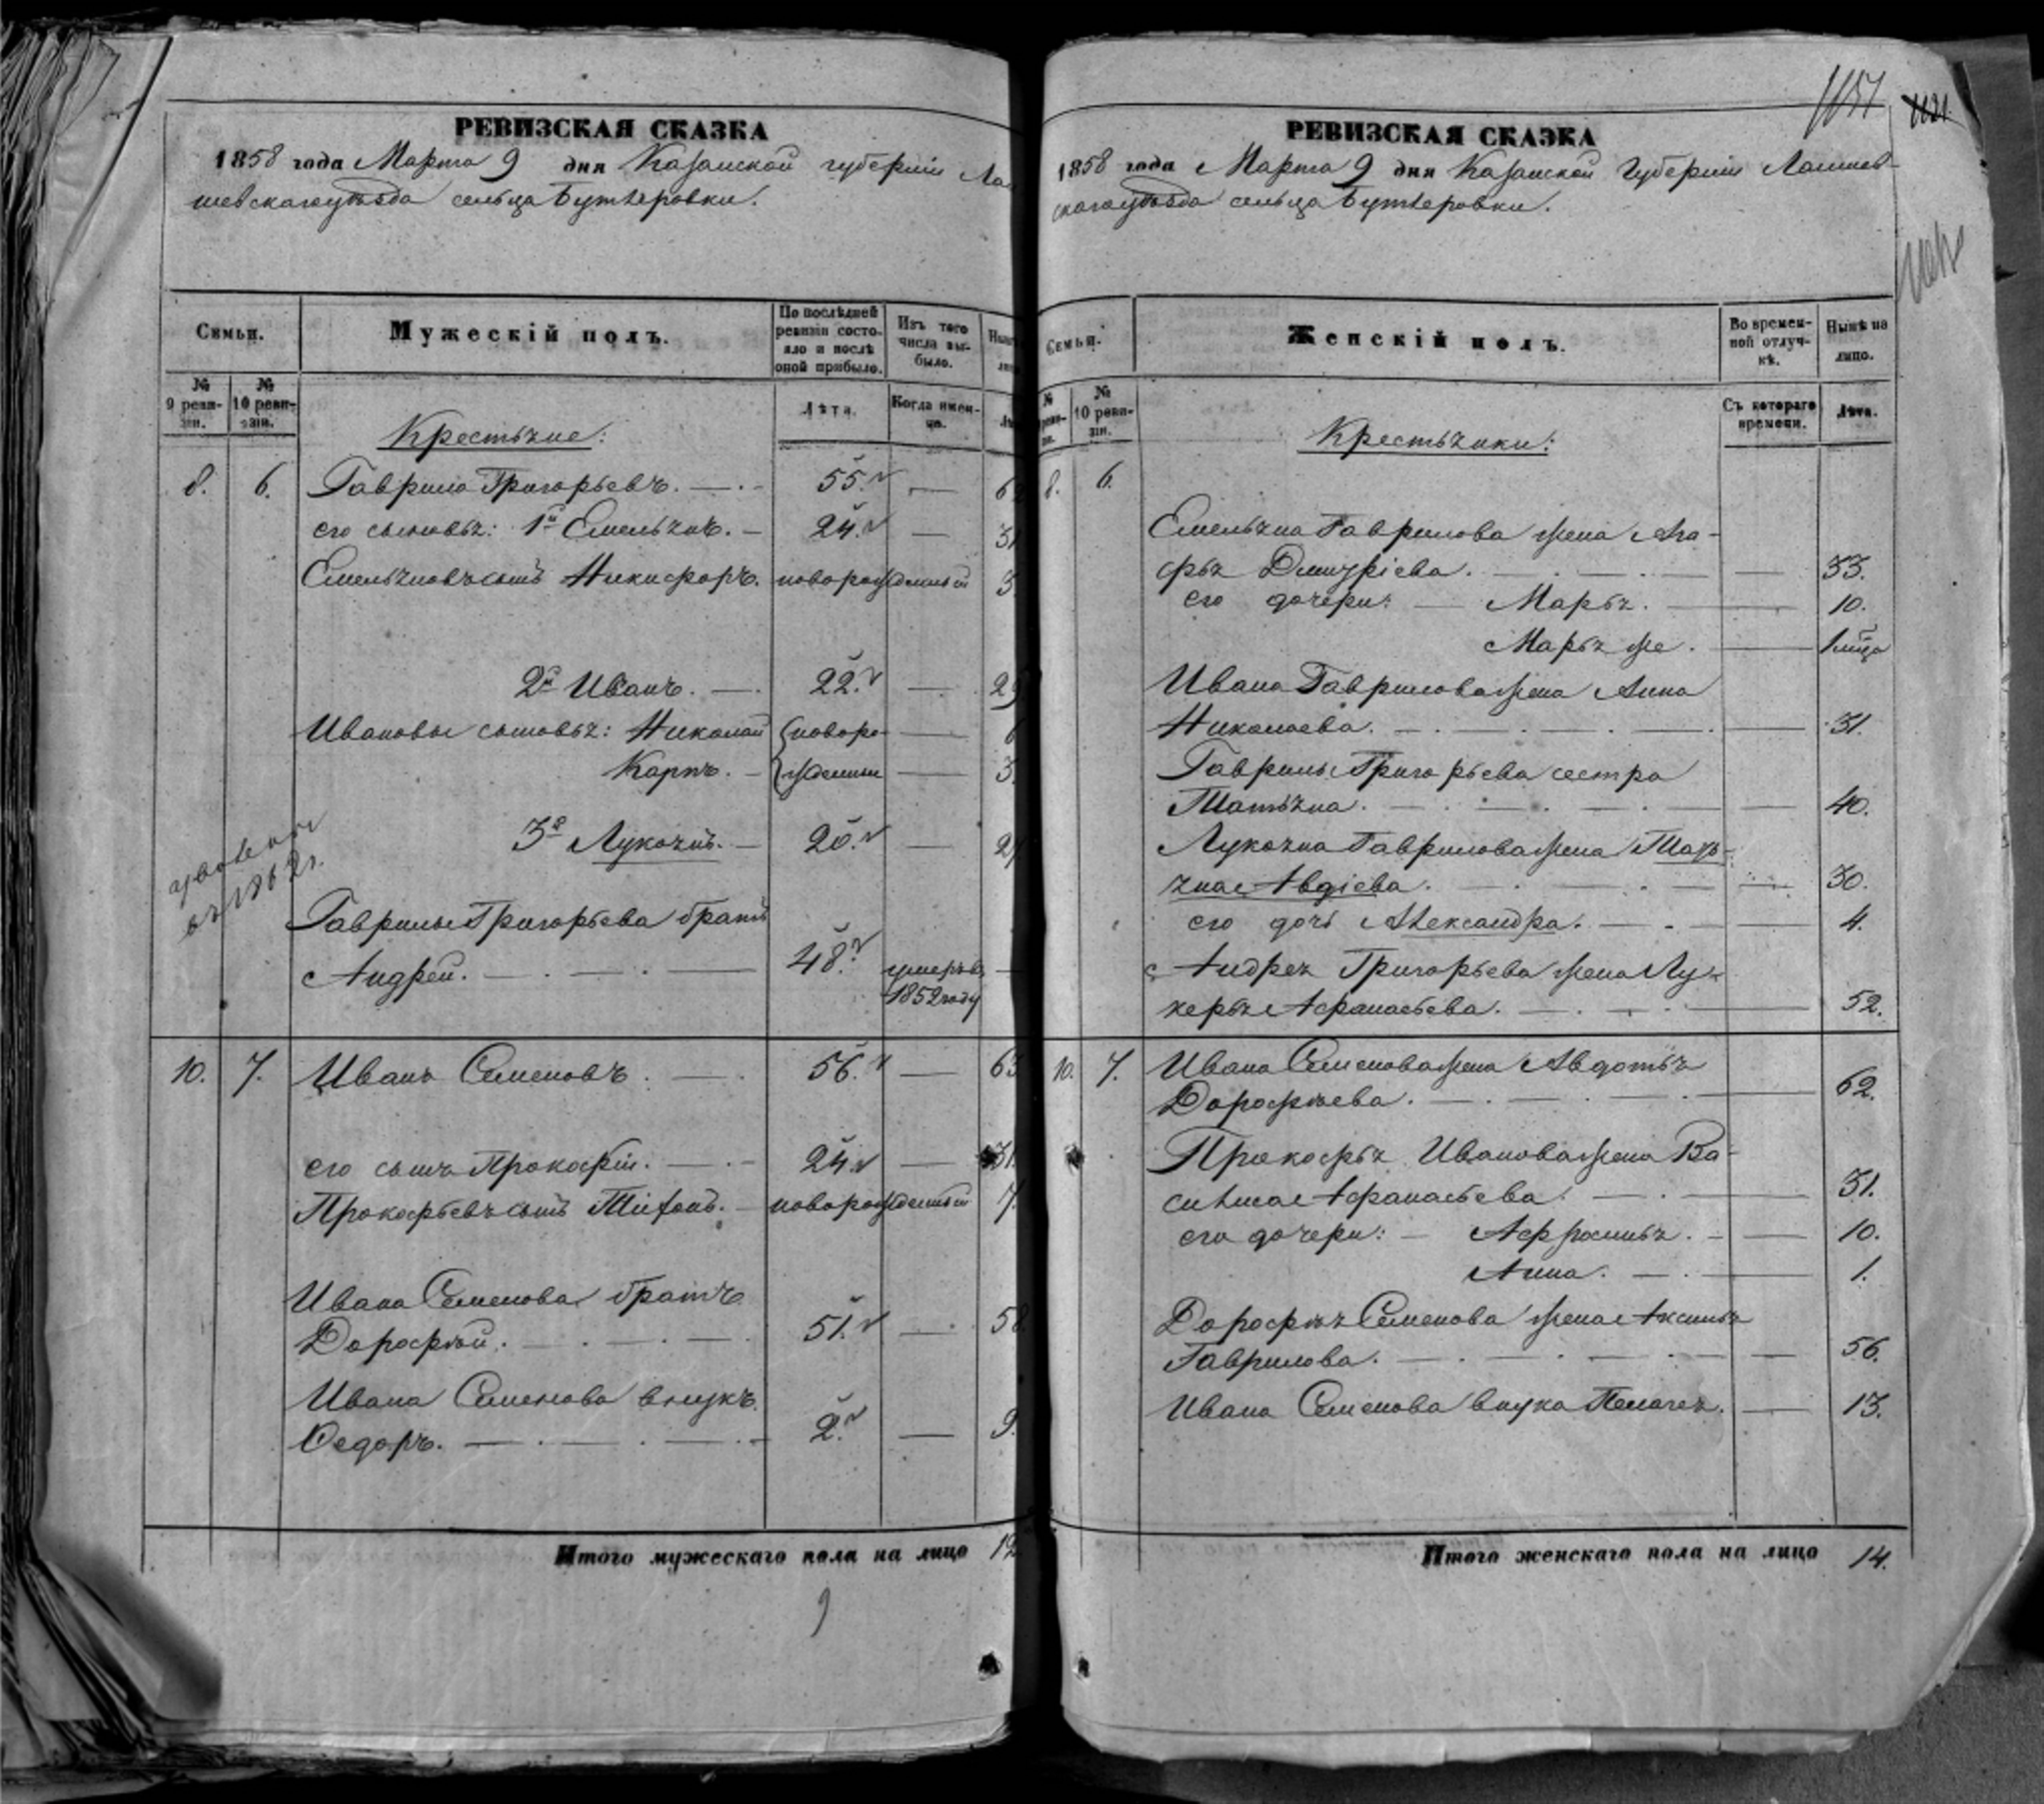 РЕВИЗСКАЯ СКАЗКА
1858 года Марта 9 дня Казанской губерніи Лаи
шевскаго уѣзда сельца Бутлеровки.
Семьи.
Мужескій полъ.
По послѣдней ревизіи состояло и послѣ оной прибыло.
Изъ того числа выбыло.
№ 9 ревизіи.
№ 10 ревизіи.
Лѣта.
Когда именно.
Крестьяне:
8. 6. Гаврило Григорьевъ. 55.
его сыновья: 1й Емельянъ. 24. 31
Емельяновъ сынъ Никифоръ. новорожденный 3.
2й Иванъ. 22. 29
Ивановы сыновья: Николай новоро- 6
Карпъ. жденные 3.
3й Лукоянъ. 20. 27
уволенъ
въ 1862 г.
Гаврилы Григорьева братъ
Андрей. 48. умеръ въ
1852 году
10. 7. Иванъ Семеновъ. 56. 63
его сынъ Прокофій. 24. 31.
Прокофьевъ сынъ новорожденный 7.
Ивана Семенова братъ
Дорофѣй. 51. 58.
Ивана Семенова внукъ
Ѳедоръ. 2. 9.
Итого мужескаго пола на лицо 12
9
1157
1121
РЕВИЗСКАЯ СКАЗКА
1858 года Марта 9 дня Казанской Губерніи Лаишев-
скаго уѣзда сельца Бутлеровки.
Семьи.
Женскій полъ.
Во временной отлучкѣ.
Нынѣ на лицо.
№ 10 ревизіи.
Съ котораго времени.
Лѣта.
Крестьянки:
8. 6.
Емельяна Гаврилова жена Ага-
фья Дмитріева. 33.
его дочери: Марья. 10.
Марья же.
Ивана Гаврилова жена Анна
Николаева. 31.
Гаврилы Григорьева сестра
Татьяна. 40.
Лукояна Гаврилова жена Тать-
яна Авдіева. 30.
его дочь Александра. 4.
Андрея Григорьева жена Лу-
керья Афанасьева. 52.
10. 7. Ивана Семенова жена Авдотья
Дорофѣева. 62.
Прокофья Иванова жена Ва-
силиса Афанасьева. 31.
его дочери: Афросинья. 10.
Анна. 1.
Дорофѣя Семенова жена Аксинья
Гаврилова. 56.
Ивана Семенова внука Пелагея. 13.
Итого женскаго пола на лицо 14.